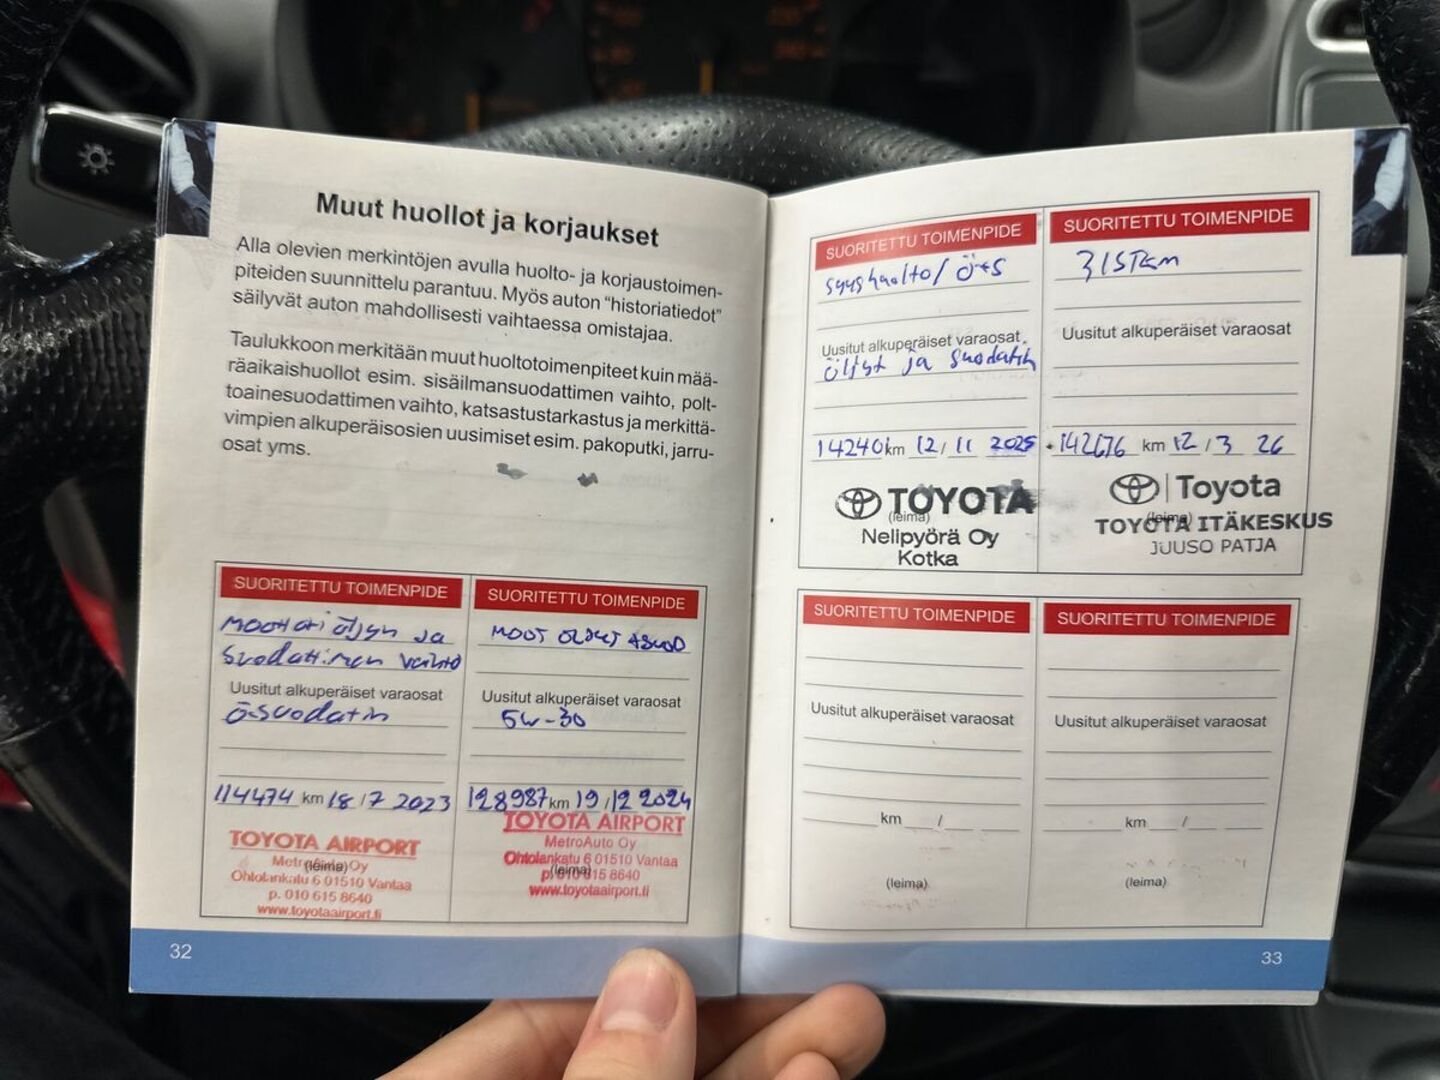 Muut huollot ja korjaukset
Alla olevien merkintöjen avulla huolto- ja korjaustoimen-
piteiden suunnittelu parantuu. Myös auton "historiatiedot"
säilyvät auton mahdollisesti vaihtaessa omistajaa.
Taulukkoon merkitään muut huoltotoimenpiteet kuin mää-
räaikaishuollot esim. sisäilmansuodattimen vaihto, polt-
toainesuodattimen vaihto, katsastustarkastus ja merkittä-
vimpien alkuperäisosien uusimiset esim. pakoputki, jarru-
osat yms.
SUORITETTU TOIMENPIDE
moottori öljyn ja
suodattimen vaihto
Uusitut alkuperäiset varaosat
ö-suodatin
114474 km 18 / 7 2023
TOYOTA AIRPORT
MetroAuto Oy
(leima)
Ohtolankatu 6 01510 Vantaa
p. 010 615 8640
www.toyotaairport.fi
SUORITETTU TOIMENPIDE
MOOT ÖLJYT +SUOD
Uusitut alkuperäiset varaosat
5W-30
128987 km 19 / 12 2024
TOYOTA AIRPORT
MetroAuto Oy
Ohtolankatu 6 01510 Vantaa
(leima)
p. 010 615 8640
www.toyotaairport.fi
32
SUORITETTU TOIMENPIDE
syyshuolto / Ö+S
Uusitut alkuperäiset varaosat
öljyt ja suodatin
14240 km 12 / 11 2025
TOYOTA
(leima)
Nelipyörä Oy
Kotka
SUORITETTU TOIMENPIDE
Uusitut alkuperäiset varaosat
142676 km 12 / 3 26
Toyota
(leima)
TOYOTA ITÄKESKUS
JUUSO PATJA
SUORITETTU TOIMENPIDE
Uusitut alkuperäiset varaosat
km /
(leima)
SUORITETTU TOIMENPIDE
Uusitut alkuperäiset varaosat
km /
(leima)
33